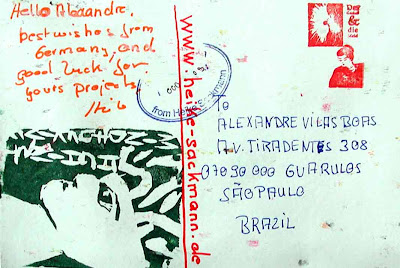 Hello Alexandre,
best wishes from
Germany, and
good luck for
yours projects
www.heike-sackmann.de
from Heike Sackmann
Der
&
die
To
ALEXANDRE VILAS BOAS
AV. TIRADENTES 308
07090 000 GUARULOS
SÃO PAULO
BRAZIL